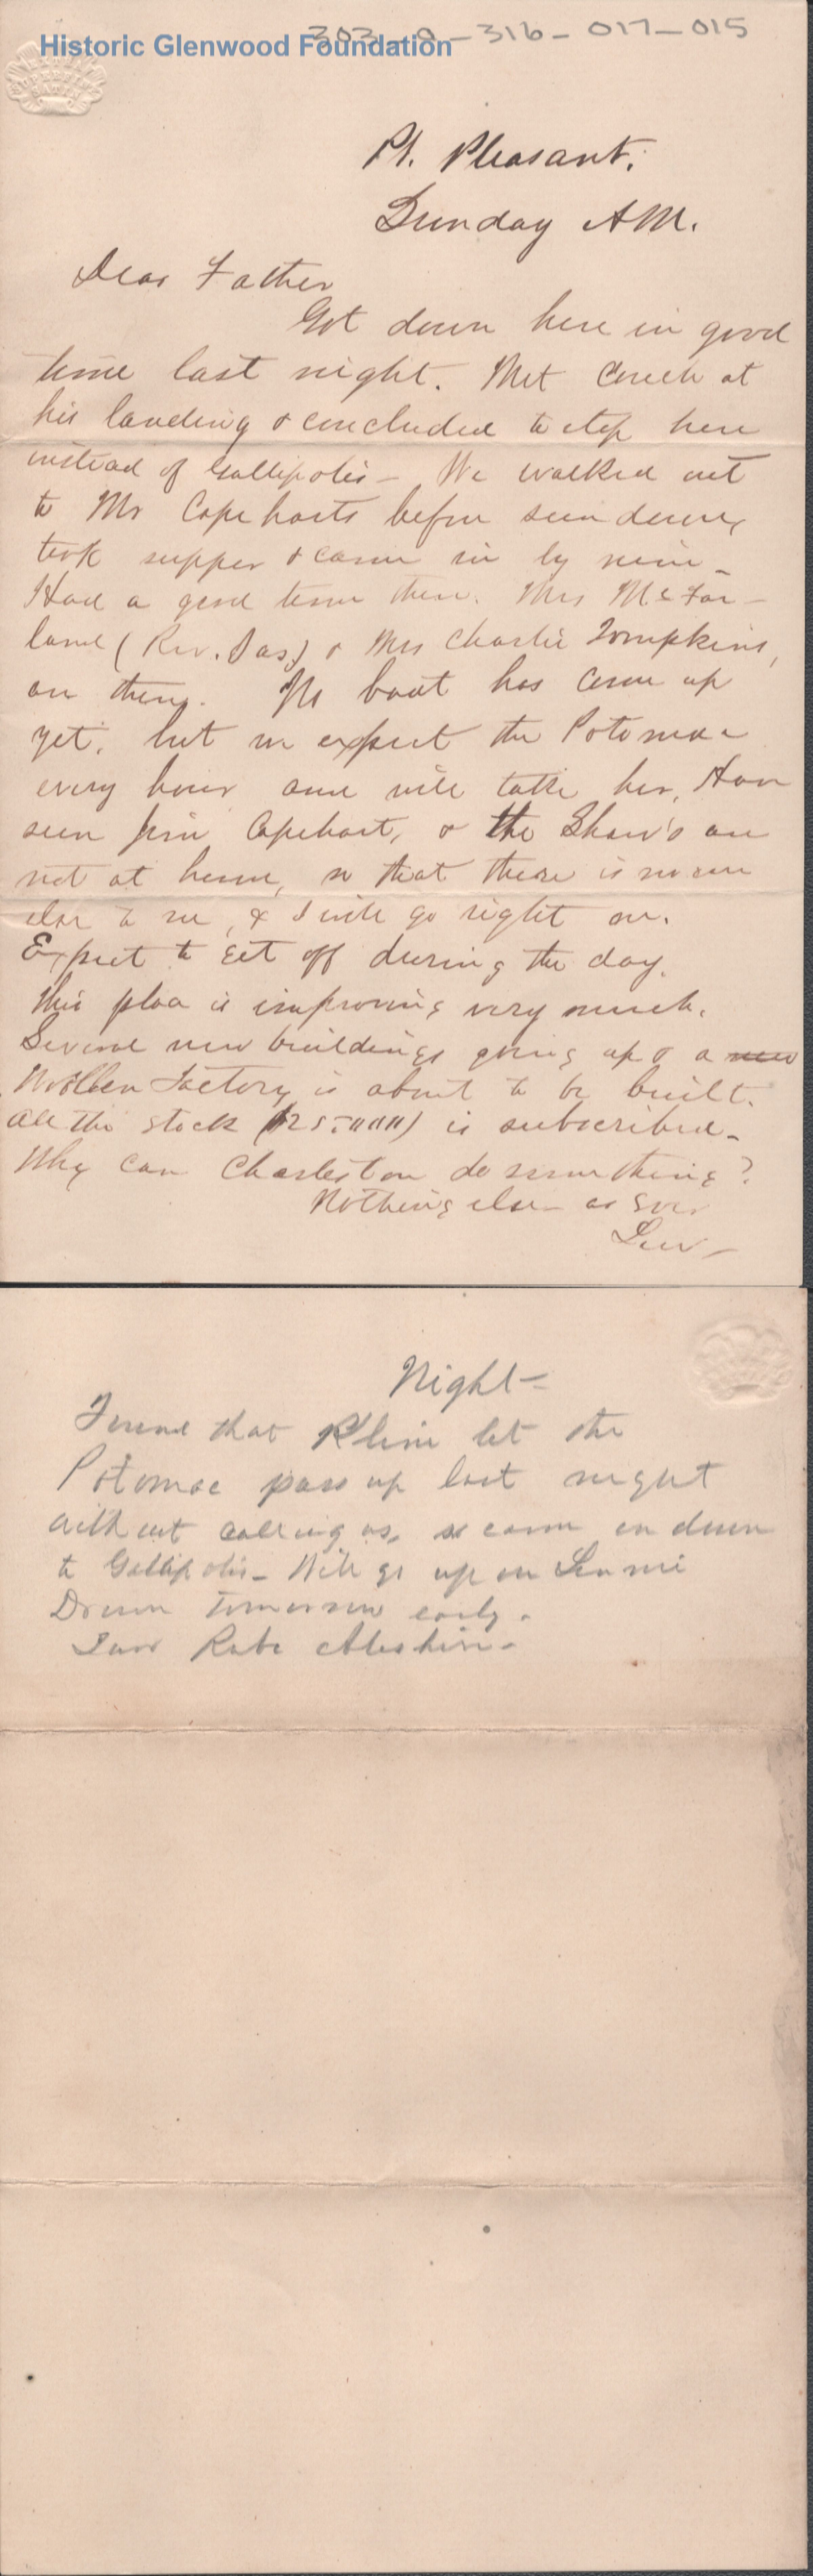 303-0-316-017-015
Historic Glenwood Foundation
Pt. Pleasant.
Sunday AM.
Dear Father
Got down here in good
time last night. Met Couch at
his landing & concluded to stop here
instead of Gallipolis - We walked out
to Mr Capeharts before sun down,
took supper & came in by nine -
Had a good time there. Mrs McFar-
land (Rev. Jas) & Mrs Charlie Tompkins,
are there. No boat has come up
yet, but we expect the Potomac
every hour and will take her. Have
seen Jim Capehart, & the Shaw's are
not at home, so that there is no one
else to see, & I will go right on.
Expect to get off during the day.
This place is improving very much.
Several new buildings going up & a new
Woollen Factory is about to be built.
All the stock ($25,000) is subscribed -
Why can Charleston do something?
Nothing else as ever
Lew -
Night -
Found that Kline let the
Potomac pass up last night
without calling us, so came on down
to Gallipolis - Will go up on
Drown tomorrow early.
Saw Rabe